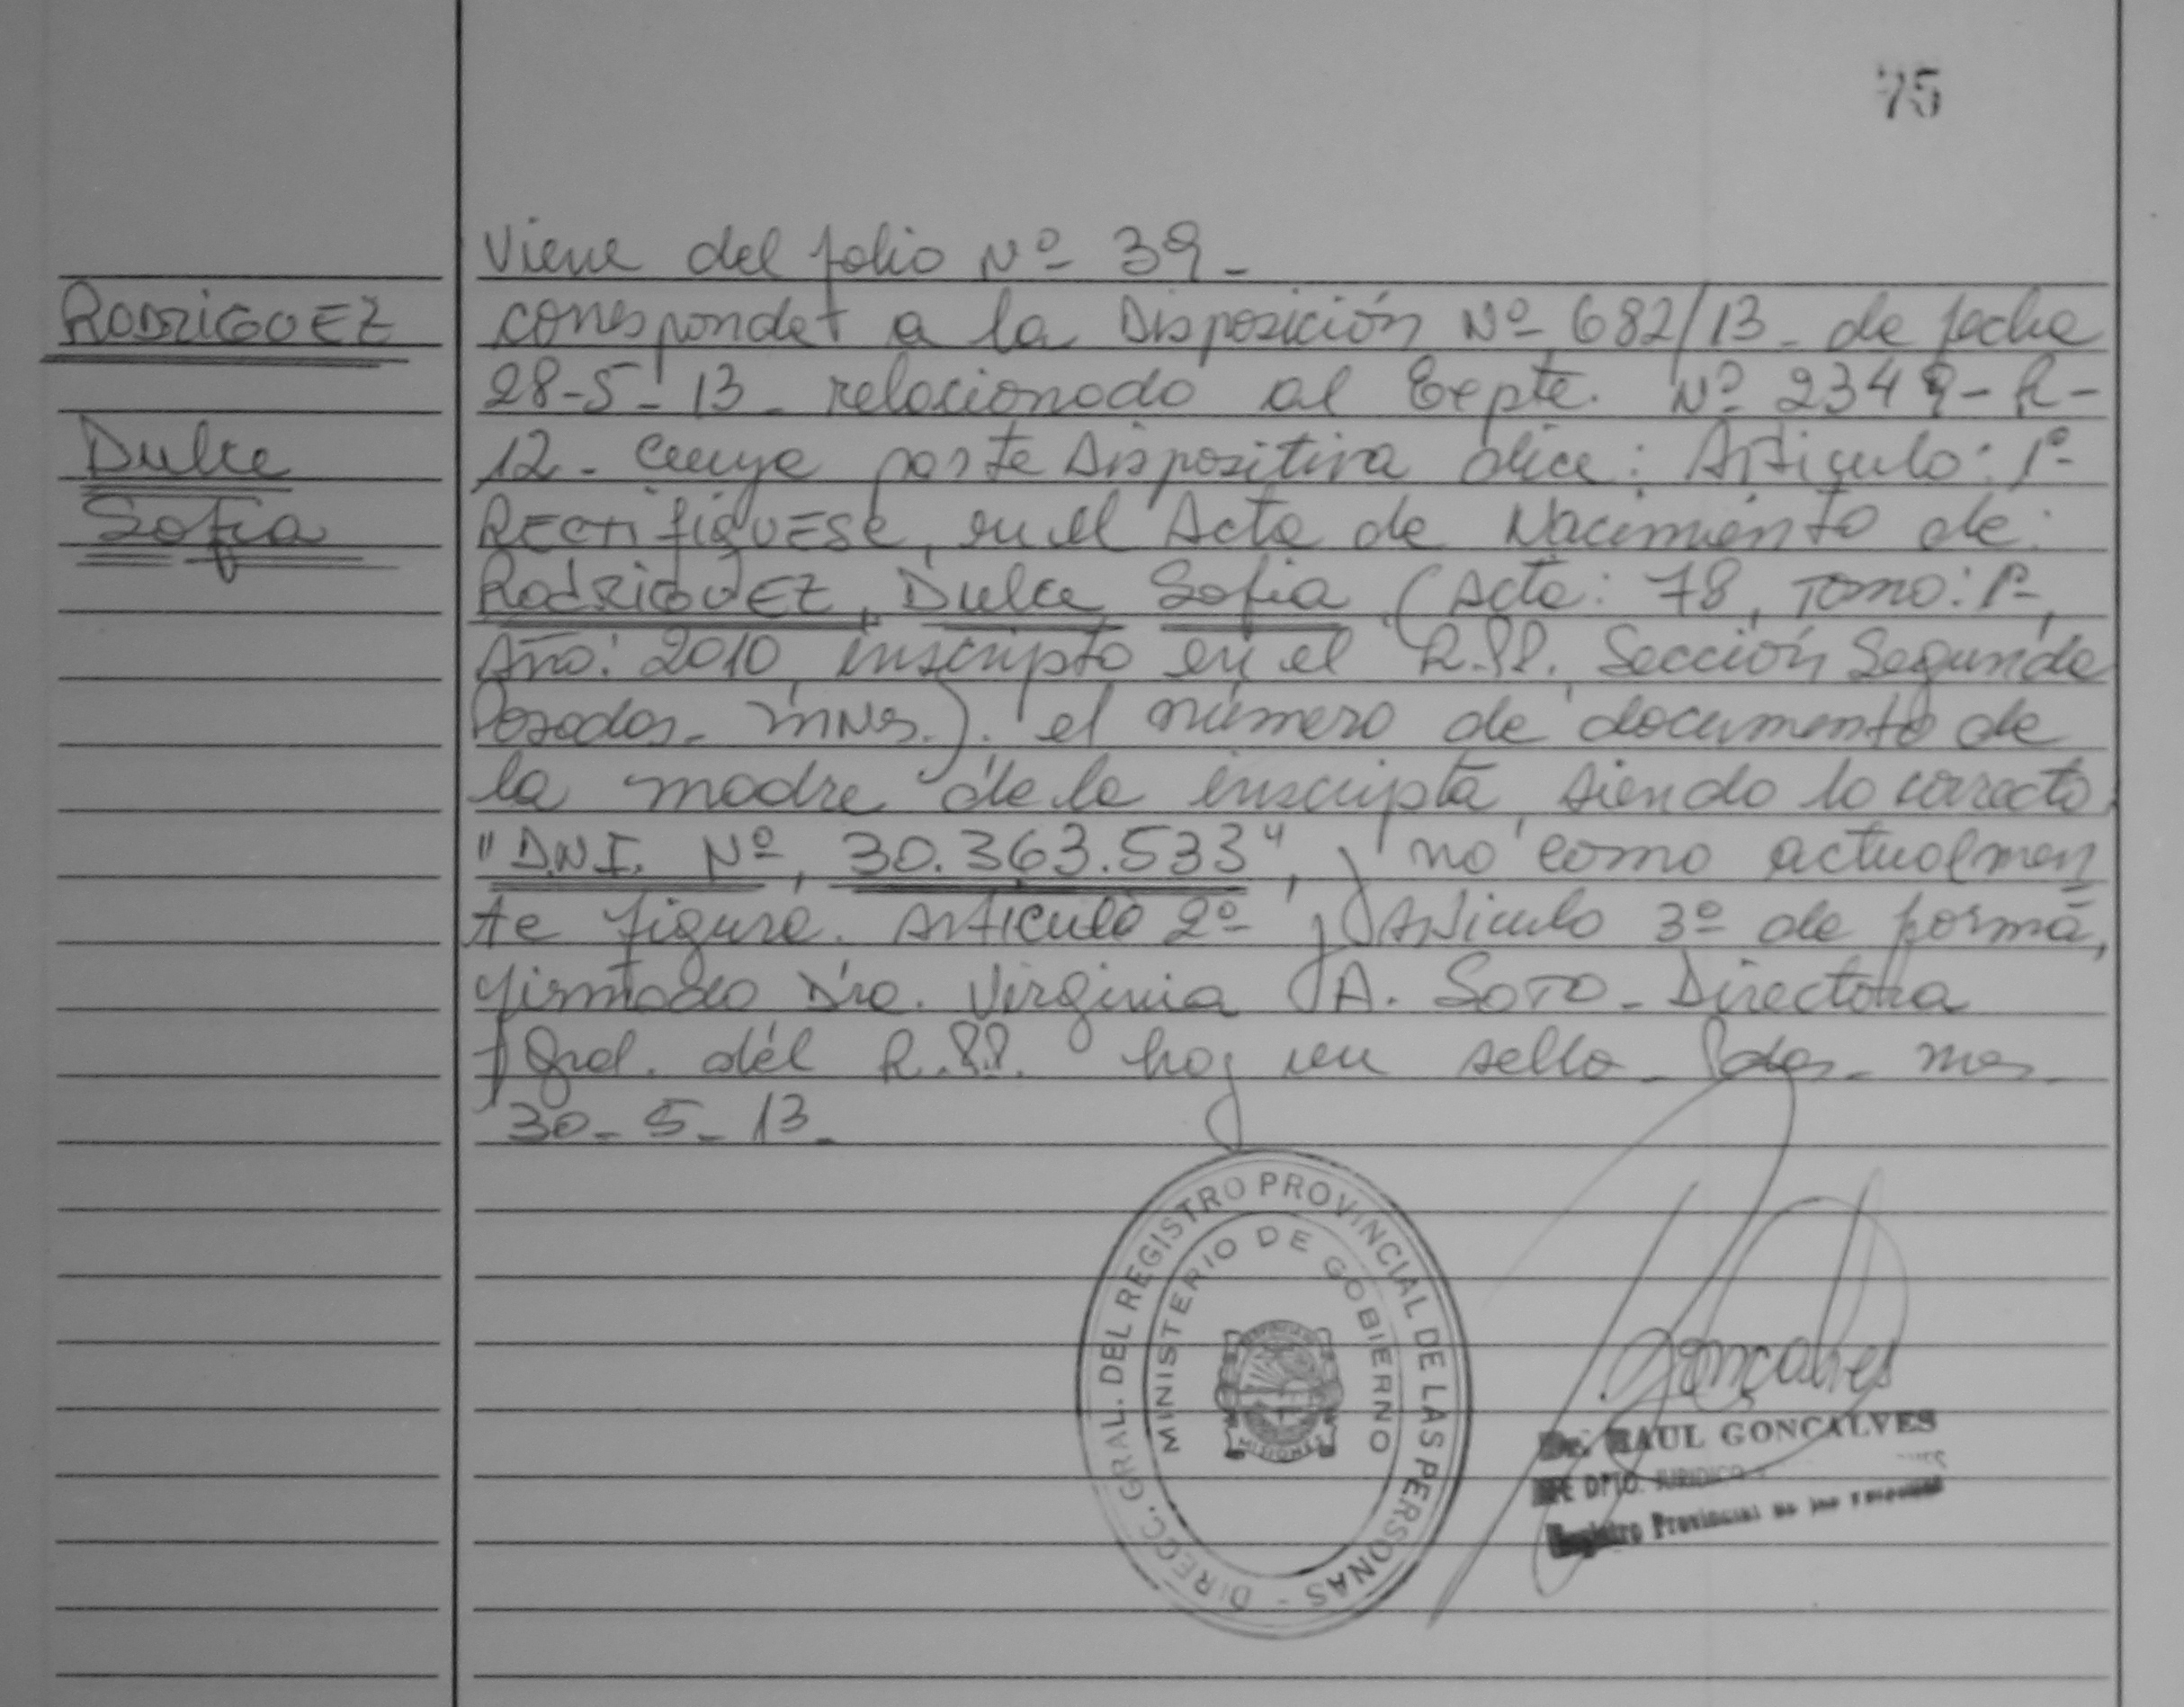 75
Viene del folio Nº 39-
RODRIGUEZ
corresponde a la Disposición Nº 682/13- de fecha
28-5-13- relacionado al Expte. Nº 2349-R-
Dulce
12- cuya parte Dispositiva dice: Articulo: 1º-
Sofia
RECTIFIQUESE, en el Acta de Nacimiento de:
RODRIGUEZ, Dulce Sofia (Acta: 78, Tomo: 1º-,
Año: 2010, inscripto en el R.P.P. Sección Segunda
Posadas- Mnes.). el número de documento de
la madre de la inscripta, siendo lo correcto:
"D.N.I. Nº, 30.363.533", y no como actualmen
te figura. Articulo 2º y Articulo 3º de forma,
firmado Dra. Virginia A. SOTO- Directora
Gral. del R.P.P. hay un sello- Pdas- mnes-
30-5-13-
DIRECC. GRAL. DEL REGISTRO PROVINCIAL DE LAS PERSONAS -
MINISTERIO DE GOBIERNO
MISIONES
Goncalves
Dr. RAUL GONCALVES
DPTO. JURIDICO
Registro Provincial de las Personas